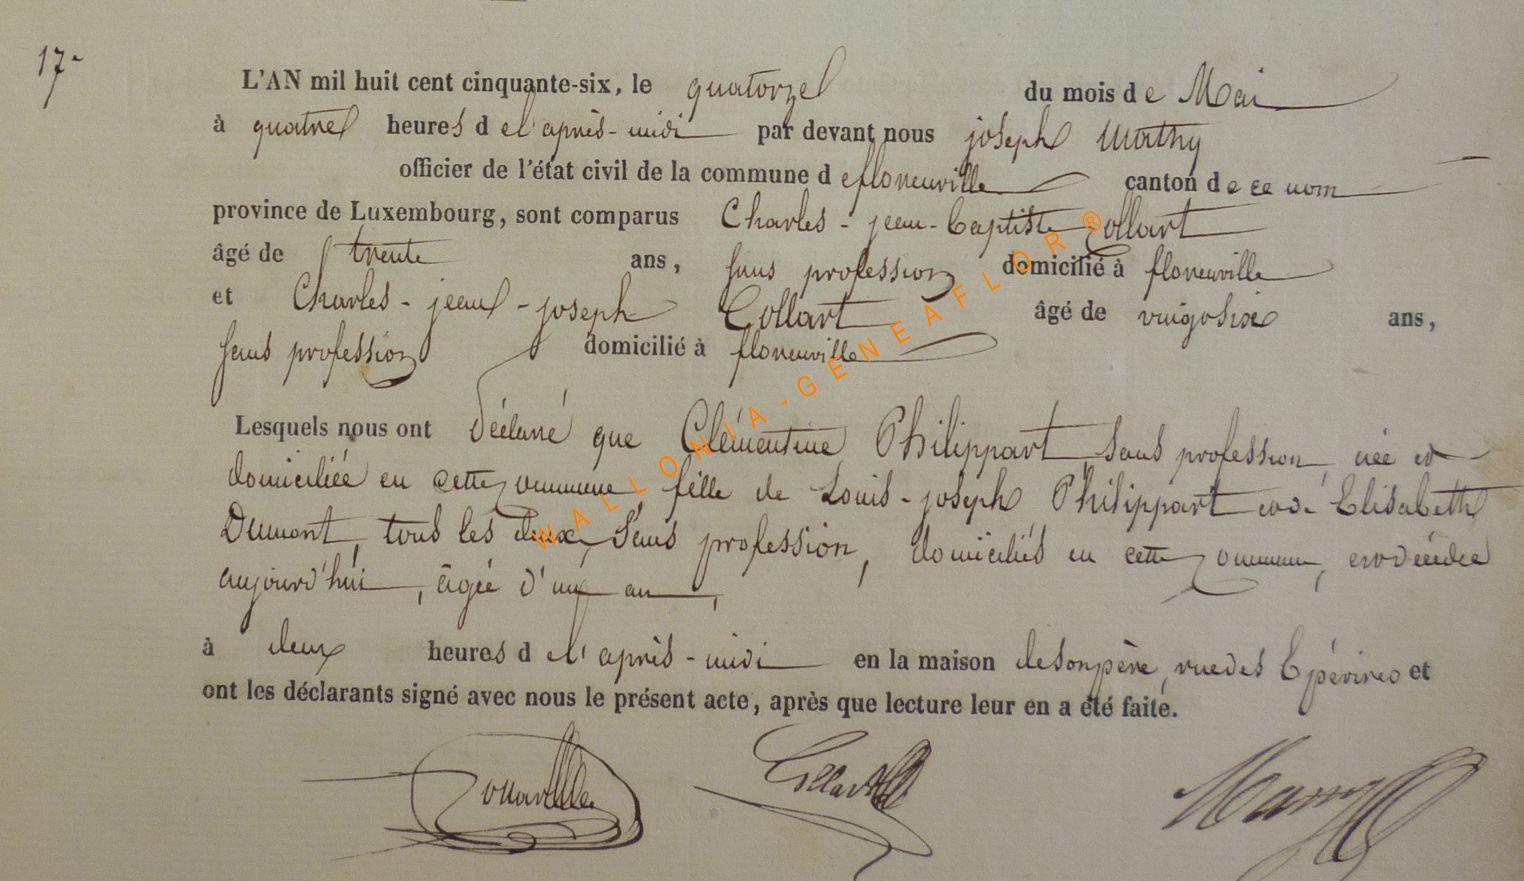 17.
L'AN mil huit cent cinquante-six, le quatorze du mois de Mai
à quatre heures de l'après-midi par devant nous joseph Mathy
officier de l'état civil de la commune de florenville canton de ce nom
province de Luxembourg, sont comparus Charles-jean-baptiste Collart
âgé de trente ans, sans profession domicilié à florenville
et Charles-jean-joseph Collart âgé de vingt six ans,
sans profession domicilié à florenville
Lesquels nous ont déclaré que Clémentine Philippart sans profession, née et
domiciliée en cette commune, fille de Louis-joseph Philippart et d'Elisabeth
Dumont, tous les deux sans profession, domiciliés en cette commune, est décédée
aujourd'hui, âgée d'un an,
à deux heures de l'après-midi en la maison de son père, rue des Epérires et
ont les déclarants signé avec nous le présent acte, après que lecture leur en a été faite.
Collart
WALLONIA-GENEAFLOR®